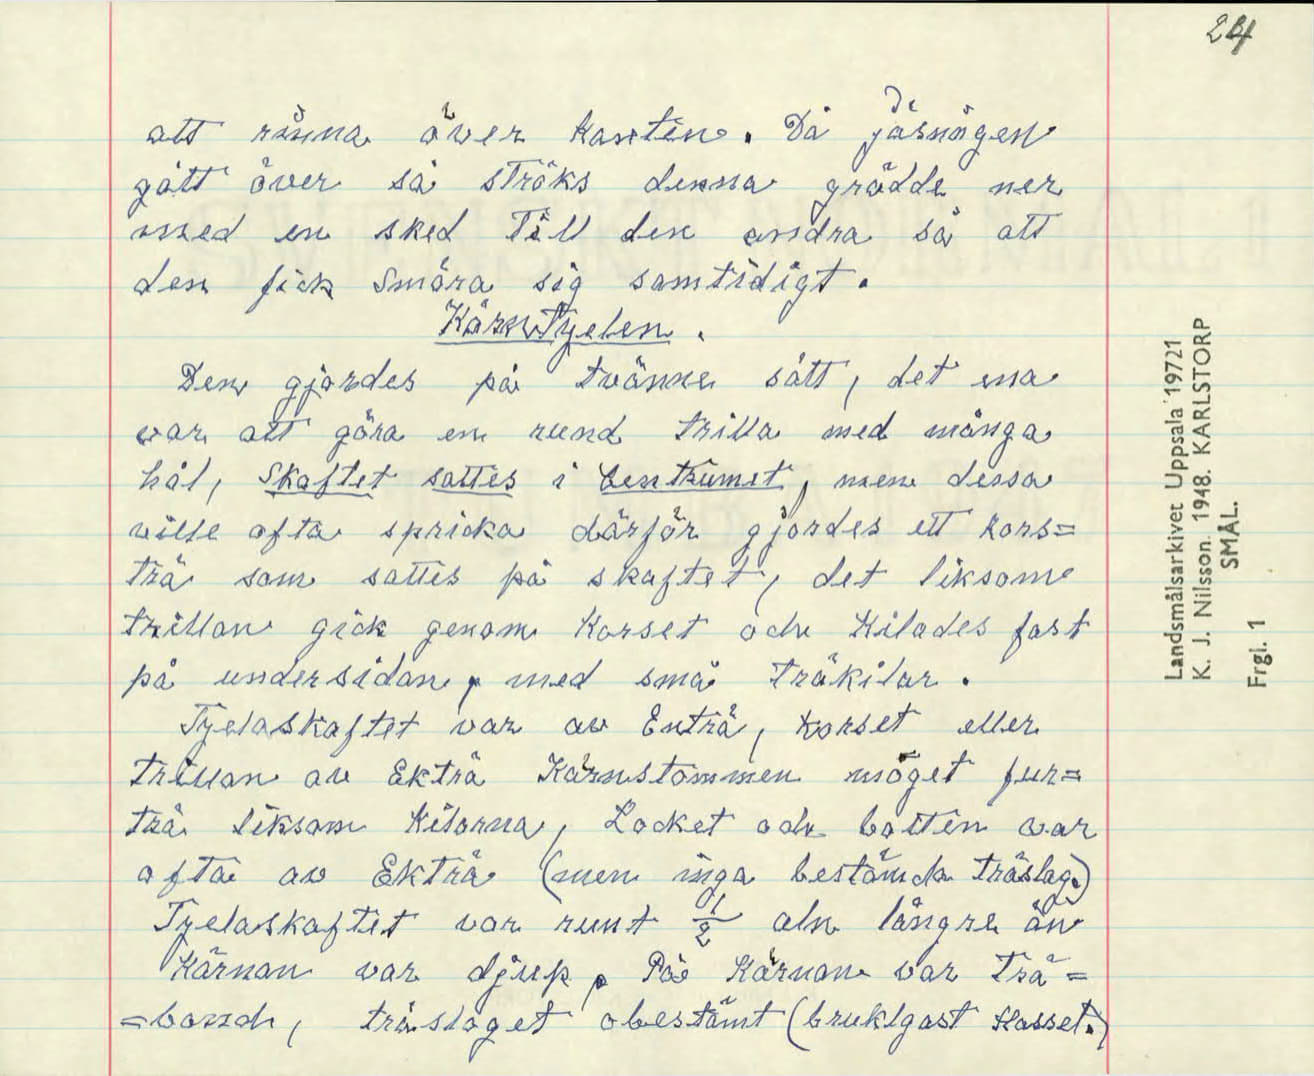 24
att rinna över kanten. Då jäsningen
gått över så ströks denna grädde ner
med en sked till den andra så att
den fick smöra sig samtidigt.
Kärntyelen.
Den gjordes på tvänne sätt, det ena
var att göra en rund trilla med många
hål, Skaftet sattes i Centrumet, men dessa
ville ofta spricka därför gjordes ett kors=
trä som sattes på skaftet, det liksom
trillan gick genom Korset och Kilades fast
på undersidan, med små träkilar.
Tyelaskaftet var av Enträ, korset eller
trillan av Ekträ Kärnstommen möget fur=
trä liksom Kilarna, Locket och botten var
ofta av Ekträ (men inga bestämda träslag.)
Tyelaskaftet var runt 1/2 aln längre än
Kärnan var djup, På Kärnan var Trä=
=band, träslaget obestämt (bruklgast Hasset.)
Landsmålsarkivet Uppsala 19721
K. J. Nilsson. 1948. KARLSTORP
SMÅL.
Frgl. 1